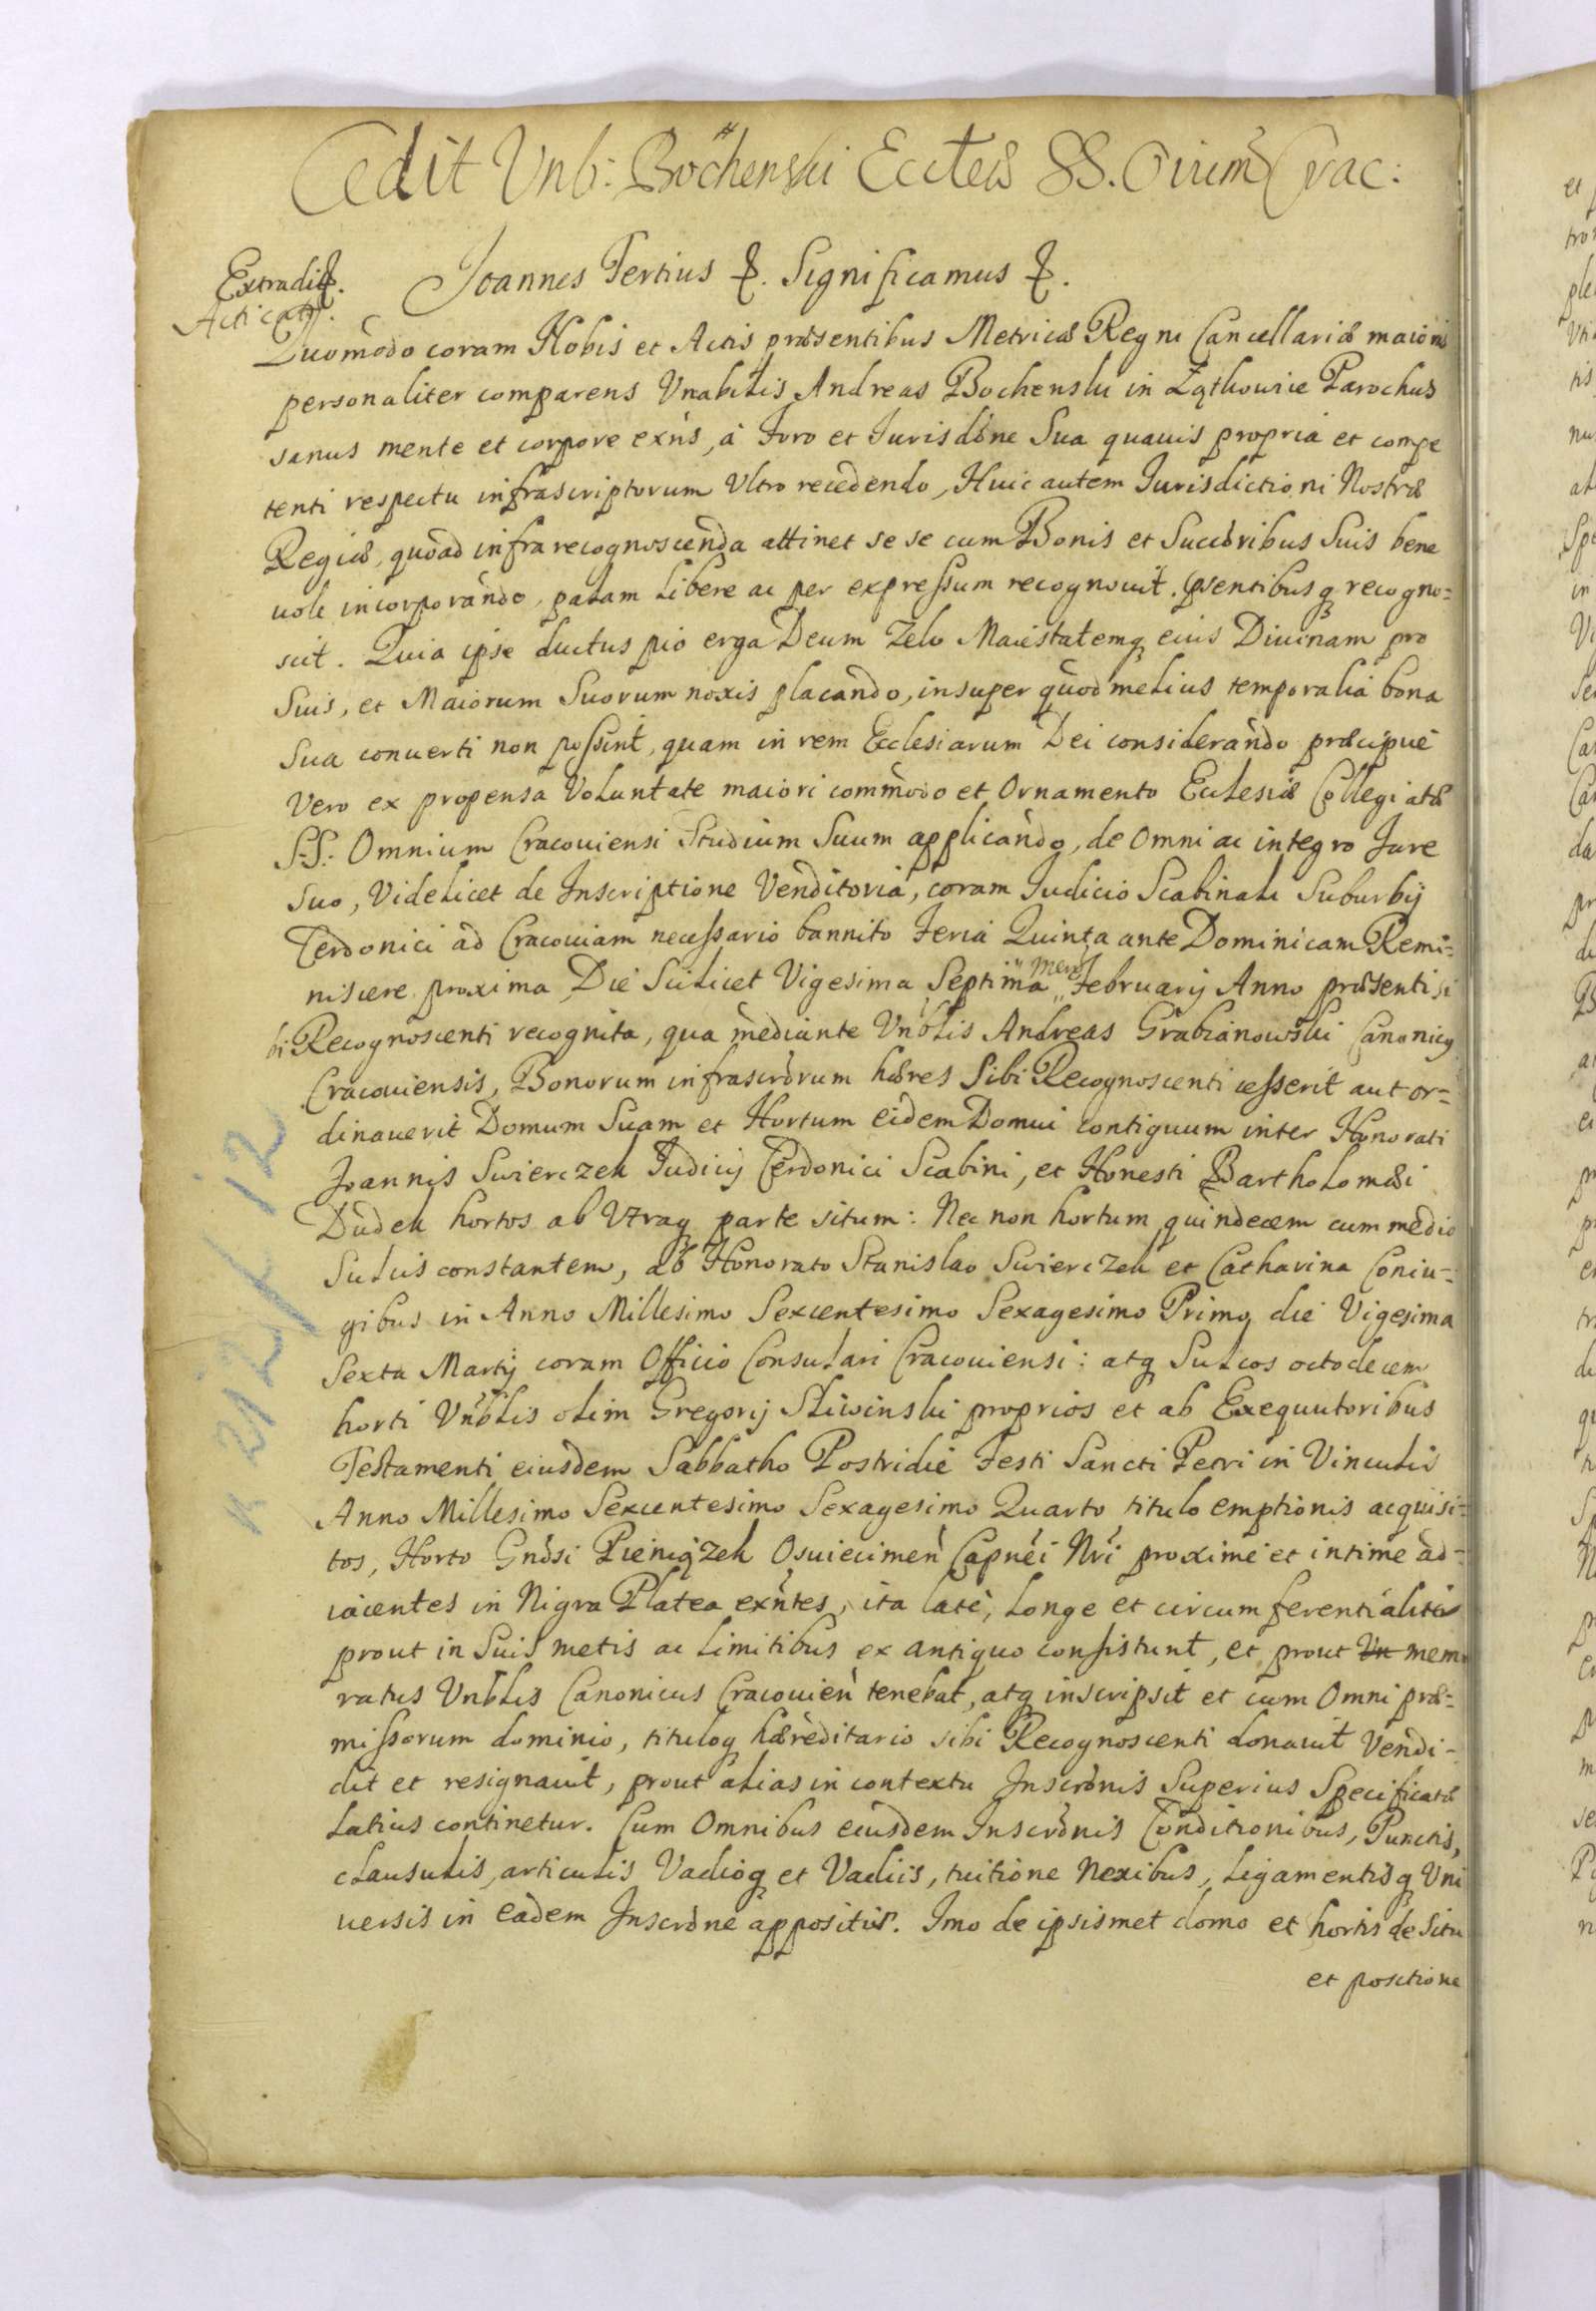 Cedit Vnb: Bochenski Eccteae SS. Oium Crac:
Extradit.
Acticat.
Joannes Tertius &. Significamus &.
Quomodo coram Nobis et Actis praesentibus Metricae Regni Cancellariae maioris
personaliter comparens Vnabilis Andreas Bochenski in Zątkowice Parochus
sanus mente et corpore exns, á Foro et Jurisdōne Sua quauis propria et compe
tenti respectu infrascriptorum Vltro recedendo, Huic autem Jurisdictioni Nostrae
Regiae, quoad infra recognoscenda attinet se se cum Bonis et Succōribus Suis bene
uole incorporando, palam Libere ac per expressum recognouit. psentibusq recogno=
scit. Quia ipse ductus pio erga Deum Zelo Maiestatemq eius Diuinam pro
Suis, et Maiorum Suorum noxis placando, insuper quod melius temporalia bona
Sua conuerti non possint, quam in rem Ecclesiarum Dei considerando praecipué
Vero ex propensa Voluntate maiori commodo et Ornamento Eclesiae Collegiatae
S.S. Omnium Cracouiensi Studium Suum applicando, de Omni ac integro Jure
Suo, Videlicet de Inscriptione Venditoria, coram Judicio Scabinali Suburbij
Cerdonici ad Cracouiam necessario bannito Feria Quinta ante Dominicam Remi=
niscere proxima Die Scilicet Vigesima Septima " mens " Februarij Anno praesenti si
bi Recognoscenti recognita, qua mediante Vnblis Andreas Grabianowski Canonicg
Cracouiensis, Bonorum infrascrōrum haeres Sibi Recognoscenti cesserit aut or=
dinauerit Domum Suam et Hortum eidem Domui contiguum inter Honorati
Joannis Swierczek Judicij Cerdonici Scabini, et Honesti Bartholomaei
Dudek hortos ab Vtraq parte situm: Nec non hortum quindecem cum medio
Sulcis constantem, ab Honorato Stanislao Swierczek et Catharina Coniu=
gibus in Anno Millesimo Sexcentesimo Sexagesimo Primo, die Vigesima
Sexta Martij coram Officio Consulari Cracouiensi: atq Sulcos octodecem
horti Vnblis olim Gregorij Sliwinski proprios et ab Exequutoribus
Testamenti eiusdem Sabbatho Postridie Festi Sancti Petri in Vinculis
Anno Millesimo Sexcentesimo Sexagesimo Quarto titulo emptionis acquisi=
tos, Horto Gnōsi Pieniązek Osuiecimen Capnei Nri proxime et intime ad=
iacentes in Nigra Platea exntes, ita late, Longe et circumferentialiter
prout in Suis metis ac Limitibus ex antiquo consistunt, et prout Vn memo
ratus Vnblis Canonicus Cracouien tenebat, atq inscripsit et cum Omni prae=
missorum dominio, tituloq haereditario sibi Recognoscenti donauit Vendi=
dit et resignauit, prout alias in contextu Inscrōnis Superius Specificatae
Latius continetur. Cum Omnibus eiusdem Inscrōnis Conditionibus, Punctis,
clausulis, articulis Vadioq et Vadiis, tuitione Nexibus, Ligamentisq Vni
uersis in eadem Inscrōne appositis. Imo de ipsismet domo et hortis de Situ
et positione